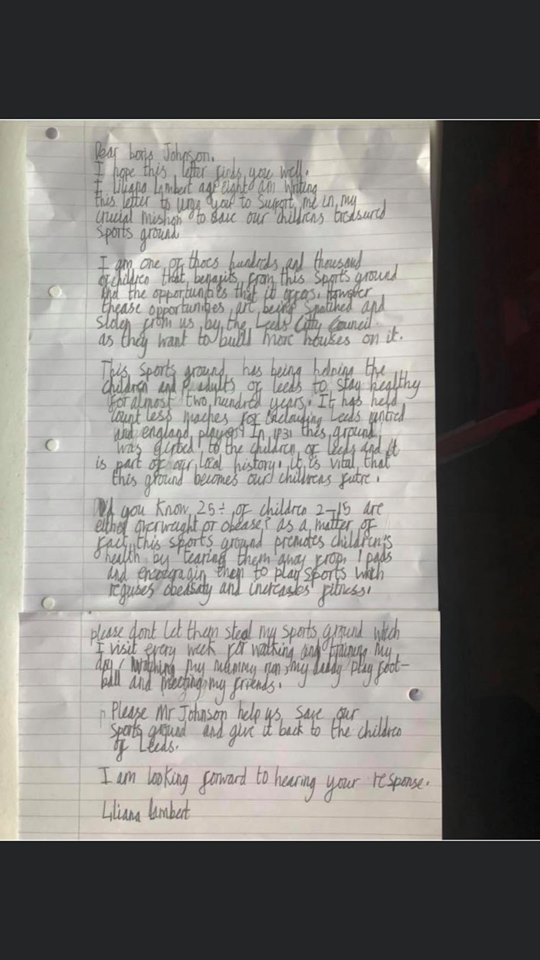 Dear boris Johnson.
I hope this letter finds you well.
I Liliana Lambert age eight am writing
this letter to urge you to support me in my
crucial mission to save our childrens treasured
sports ground.
I am one of thoes hundreds and thousand
of children that benafits from this sports ground
and the opportunities that it offers. However
thease opportunities are being snatched and
stolen from us by the Leeds Citty Council
as they want to build more houses on it.
This sports ground has being helping the
children and adults of Leeds to stay healthy
for almost two hundred years. It has held
countless maches for enclouding Leeds united
and england players! In 1931 this ground
was gifted to the children of Leeds and it
is part of our local history. it is vital that
this ground becomes our childrens futre.
Did you know 25% of children 2-15 are
either overweight or obease? as a matter of
fact this sports ground promotes children's
health by tearing them away from I pads
and encouragin them to play sports wich
reguses obeasaty and increases fitness.
please dont let them steal my sports ground wich
I visit every week for walking and training my
dog, watching my mummy run, my daddy play foot-
ball and meeting my friends.
Please Mr Johnson help us save our
sports ground and give it back to the children
of Leeds.
I am looking forward to hearing your response.
Liliana Lambert